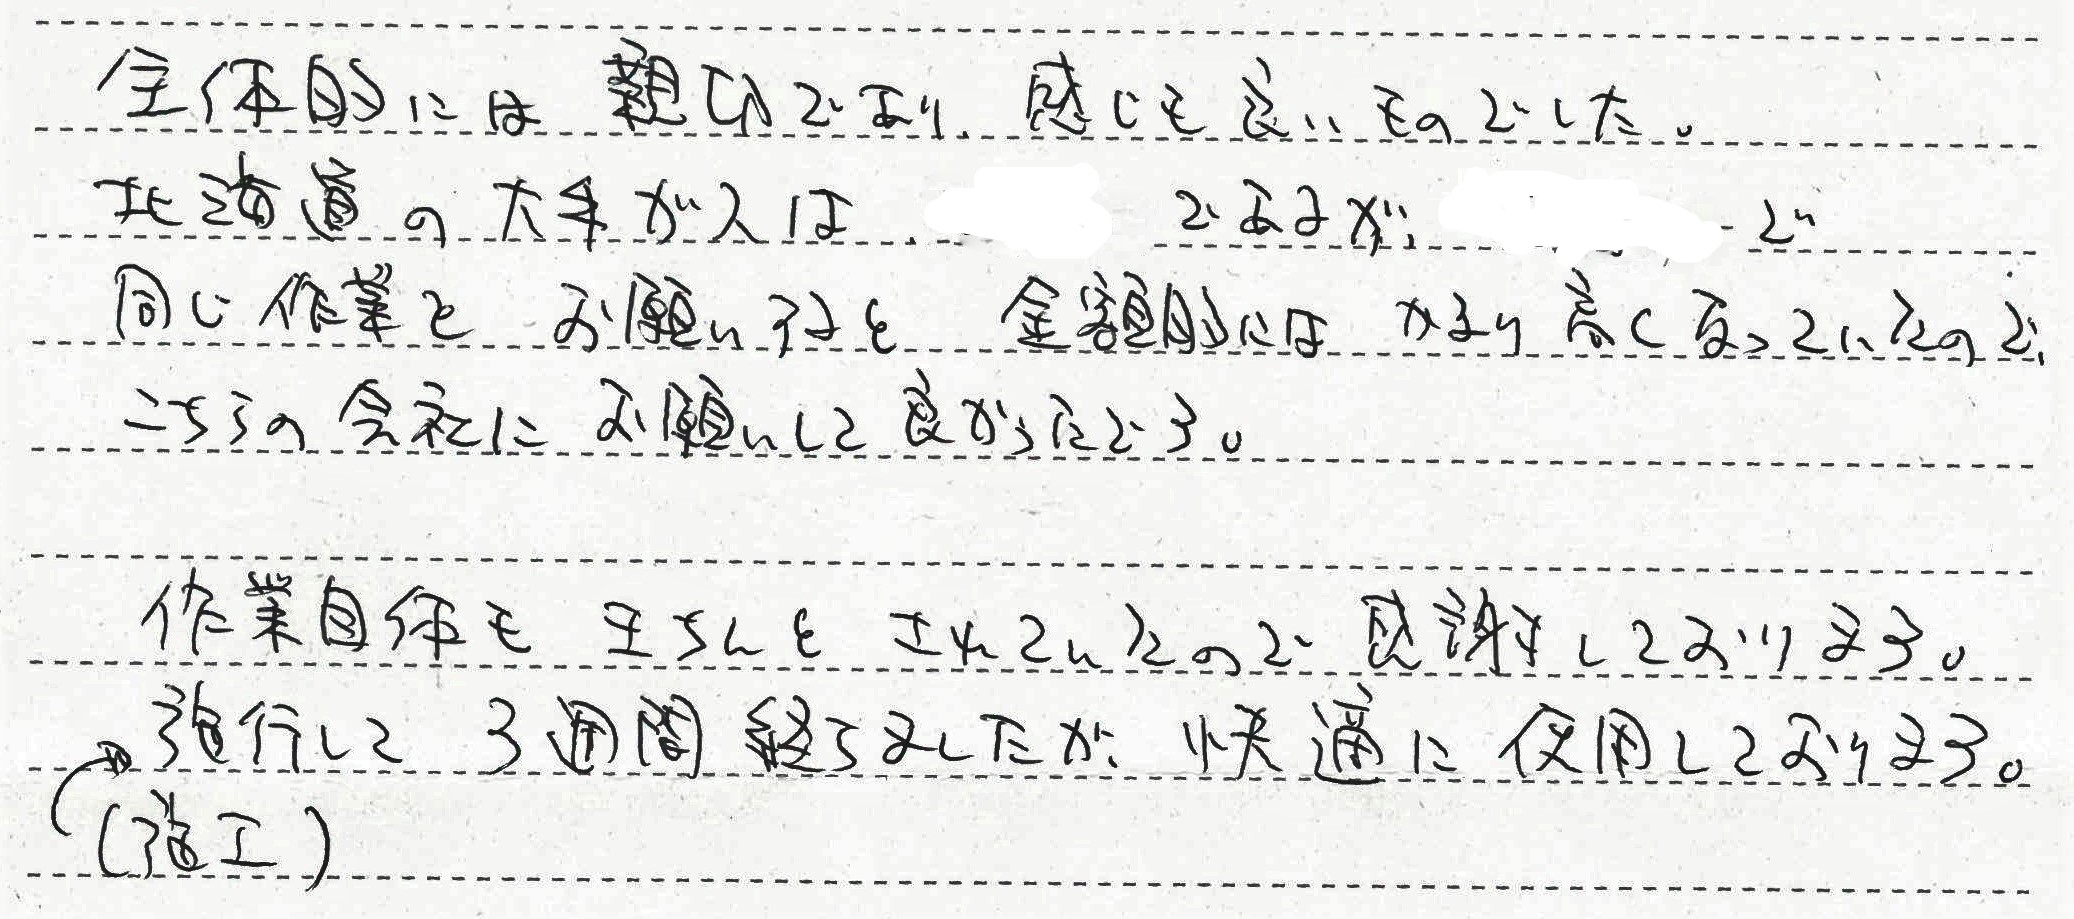 全体的には親切であり、感じも良いものでした。
北海道の大手ガスは であるが、 で
同じ作業をお願いするも 金額的にはかなり高くなっていたので、
こちらの会社にお願いして良かったです。
作業自体もきちんとされていたので感謝しております。
施行して3週間経ちましたが、快適に使用しております。
(施工)